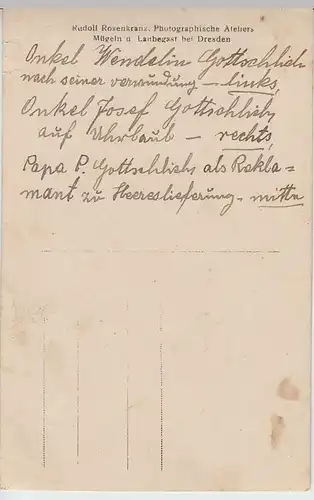 Rudolf Rosenkranz, Photographische Ateliers
Mügeln u. Laubegast bei Dresden
Onkel Wendelin Gottschlich
nach seiner verwundung – links,
Onkel Josef Gottschlich,
auf Uhrlaub – rechts,
Papa P. Gottschlich als Rekla=
mant zu Heereslieferung. mitte